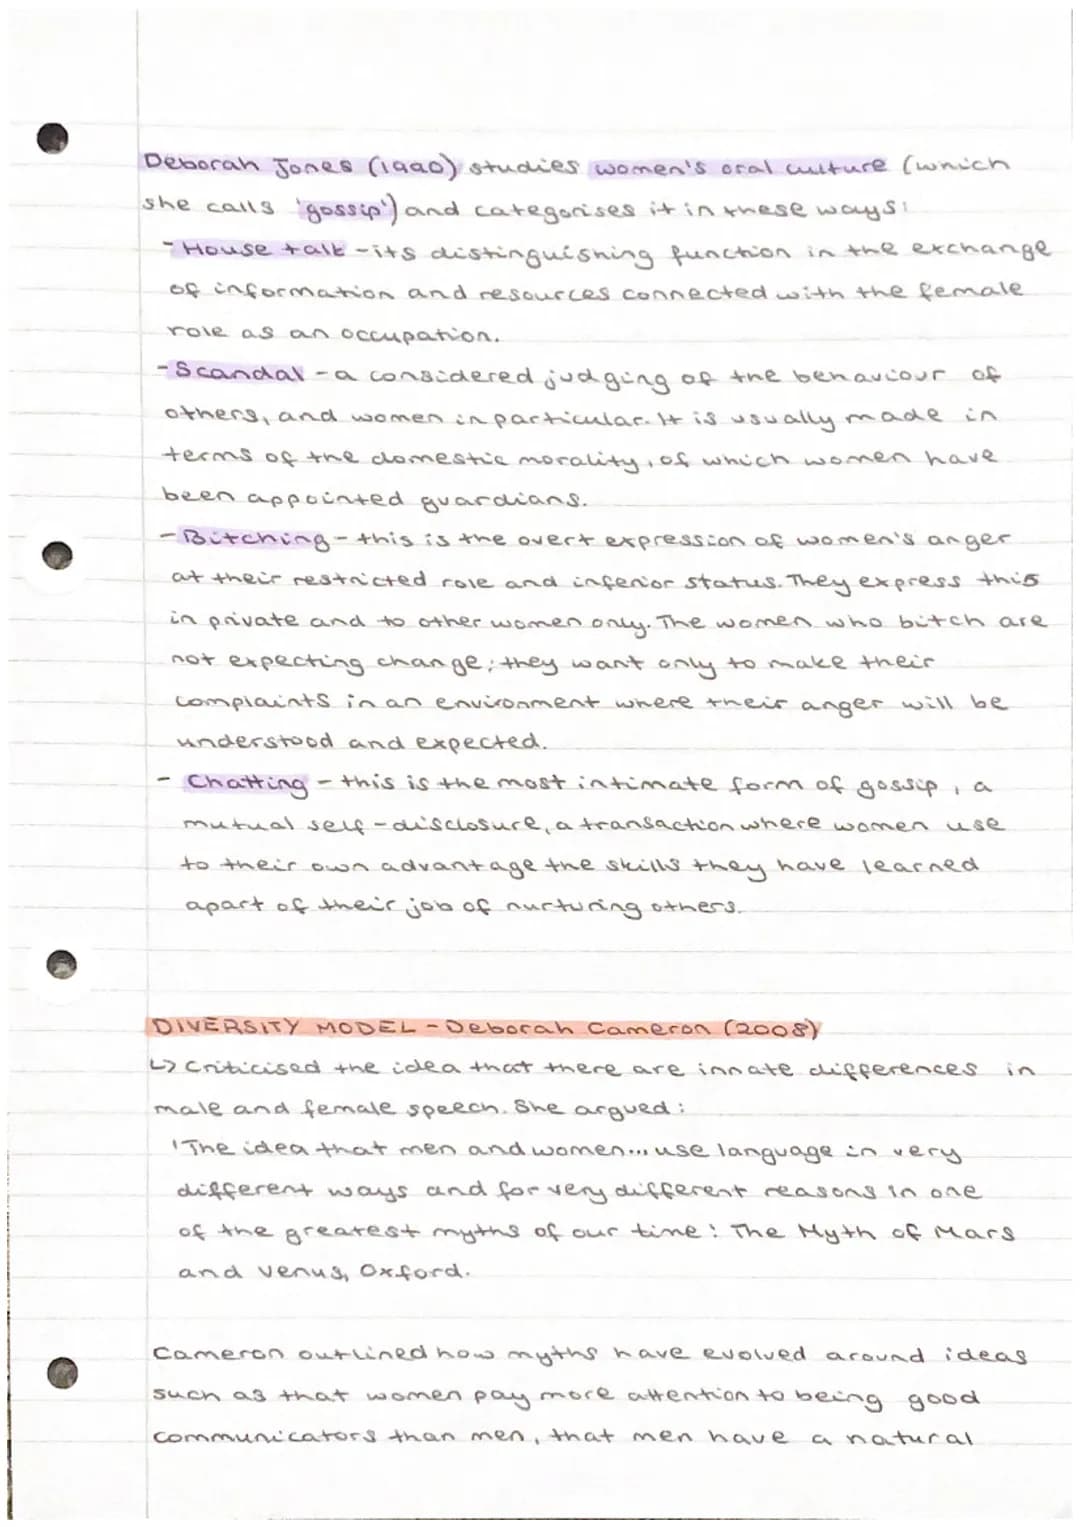 Deborah Jones (1990) studies women's oral culture (which
she calls 'gossip') and categorises it in these ways:
- House talk - its distinguishing function in the exchange
of information and resources connected with the female
role as an occupation.
- Scandal - a considered judging of the behaviour of
others, and women in particular. It is usually made in
terms of the domestic morality, of which women have
been appointed guardians.
- Bitching - this is the overt expression of women's anger
at their restricted role and inferior status. They express this
in private and to other women only. The women who bitch are
not expecting change; they want only to make their
complaints in an environment where their anger will be
understood and expected.
- Chatting - this is the most intimate form of gossip, a
mutual self-disclosure, a transaction where women use
to their own advantage the skills they have learned
apart of their job of nurturing others.
DIVERSITY MODEL - Deborah Cameron (2008)
↳ Criticised the idea that there are innate differences in
male and female speech. She argued:
'The idea that men and women... use language in very
different ways and for very different reasons in one
of the greatest myths of our time: The Myth of Mars
and Venus, Oxford.
Cameron outlined how myths have evolved around ideas
such as that women pay more attention to being good
communicators than men, that men have a natural